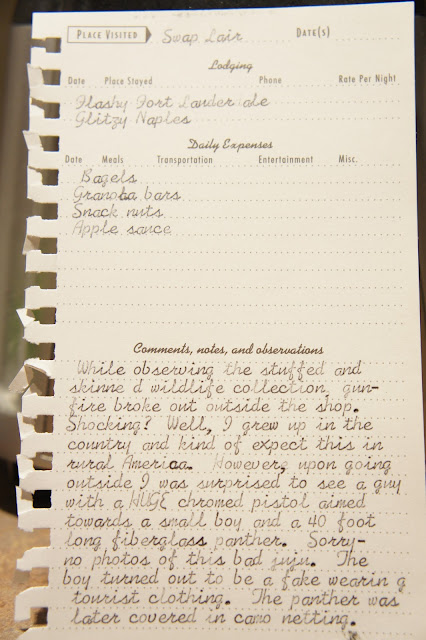 PLACE VISITED Swap Lair DATE(S)
Lodging
Date Place Stayed Phone Rate Per Night
Flashy Fort Lauder ale
Glitzy Naples
Daily Expenses
Date Meals Transportation Entertainment Misc.
Bagels
Granola bars
Snack nuts
Apple sauce
Comments, notes, and observations
While observing the stuffed and
skinne d wildlife collection, gun-
fire broke out outside the shop.
Shocking? Well, I grew up in the
country and kind of expect this in
rural America. However, upon going
outside I was surprised to see a guy
with a HUGE chromed pistol aimed
towards a small boy and a 40 foot
long fiberglass panther. Sorry-
no photos of this bad juju. The
boy turned out to be a fake wearin g
tourist clothing. The panther was
later covered in camo netting.